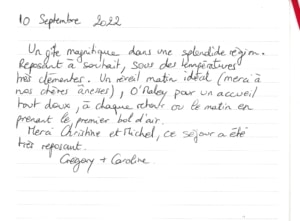 10 Septembre 2022
Un gîte magnifique dans une splendide région.
Reposant à souhait, sous des températures
très clémentes. Un réveil matin idéal (merci à
nos chères ânesses), O'Maley pour un accueil
tout doux, à chaque retour ou le matin en
prenant le premier bol d'air.
Merci Christine et Michel, ce séjour a été
très reposant.
Grégory + Caroline